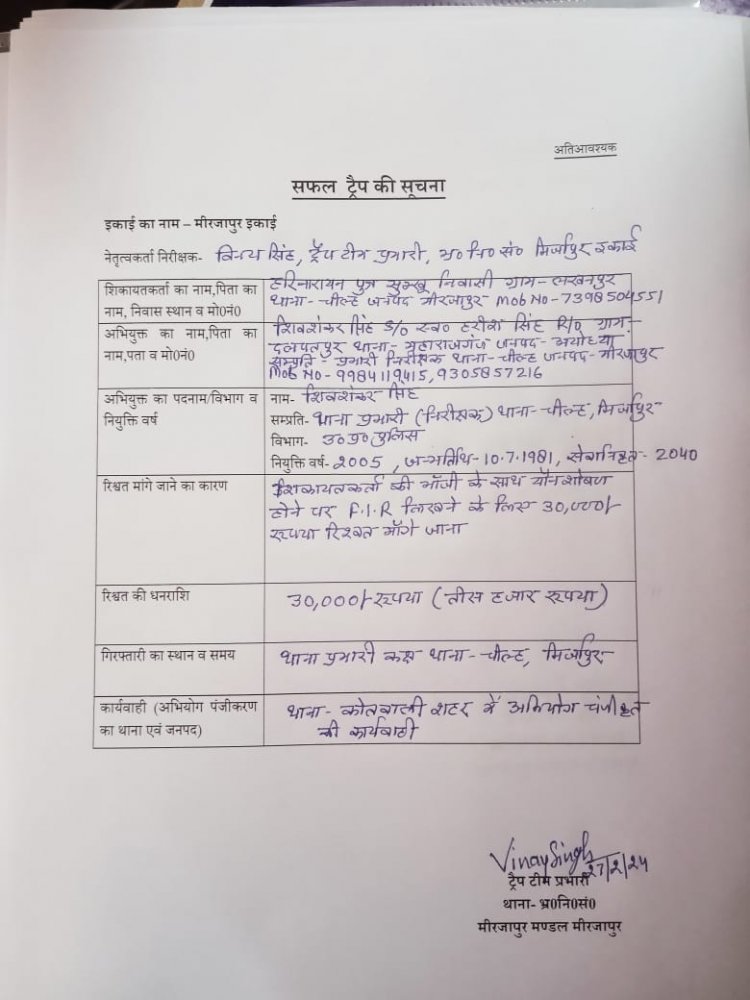 अतिआवश्यक
सफल ट्रैप की सूचना
इकाई का नाम – मीरजापुर इकाई
नेतृत्वकर्ता निरीक्षक- विनय सिंह, ट्रैप टीम प्रभारी, भ्र० नि० सं० मिर्जापुर इकाई
शिकायतकर्ता का नाम,पिता का
नाम, निवास स्थान व मो0नं0
हरिनारायन पुत्र सुम्खू निवासी ग्राम- लखनपुर
थाना- चील्ह जनपद मीरजापुर Mob No- 7398504551
अभियुक्त का नाम,पिता का
नाम,पता व मो0नं0
शिवशंकर सिंह S/o स्व० हरीश सिंह R/o ग्राम-
दलपतपुर थाना- महाराजगंज जनपद- अयोध्या
सम्प्रति- प्रभारी निरीक्षक थाना- चील्ह जनपद- मीरजापुर
Mob No- 9984119415, 9305857216
अभियुक्त का पदनाम/विभाग व
नियुक्ति वर्ष
नाम- शिवशंकर सिंह
सम्प्रति- थाना प्रभारी (निरीक्षक) थाना- चील्ह, मिर्जापुर
विभाग- उ० प्र० पुलिस
नियुक्ति वर्ष- 2005 , जन्मतिथि- 10.7.1981, सेवानिवृत- 2040
रिश्वत मांगे जाने का कारण
शिकायतकर्ता की भाँजी के साथ यौनशोषण
होने पर F.I.R लिखने के लिए 30,000/-
रूपया रिश्वत माँगे जाना
रिश्वत की धनराशि
30,000/- रूपया (तीस हजार रूपया)
गिरफ्तारी का स्थान व समय
थाना प्रभारी कक्ष थाना- चील्ह, मिर्जापुर
कार्यवाही (अभियोग पंजीकरण
का थाना एवं जनपद)
थाना- कोतवाली शहर में अभियोग पंजीकृत
की कार्यवाही
Vinay Singh
27/2/24
ट्रैप टीम प्रभारी
थाना- भ्र0नि0सं0
मीरजापुर मण्डल मीरजापुर